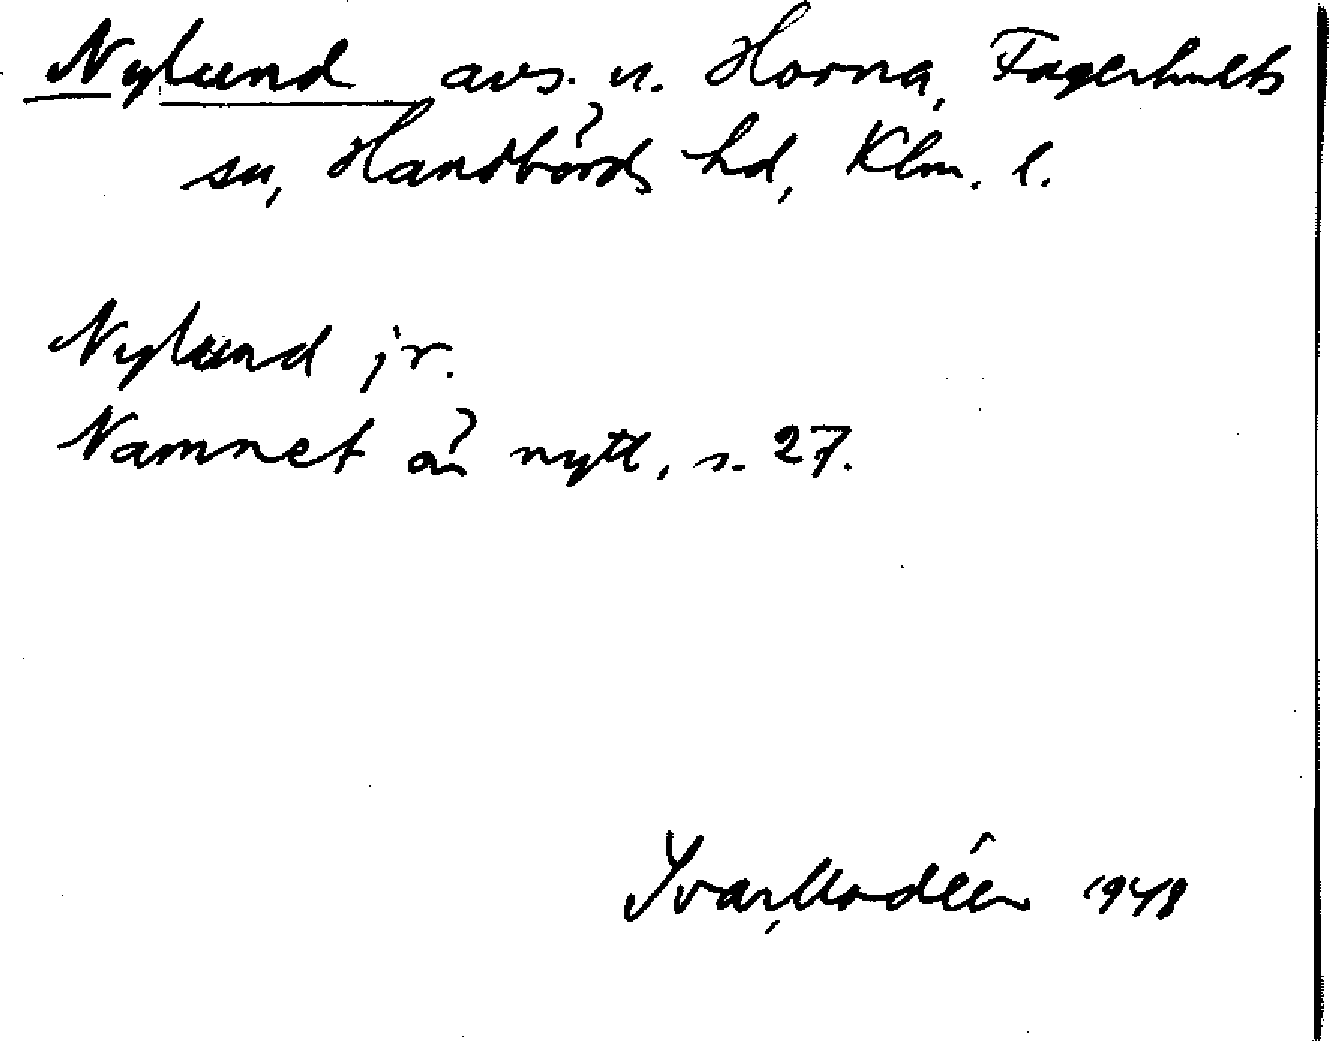 Nylund avs. u. Horna, Fagerhults
sn, Handbörds hd, Klm. l.
Nylund jr.
Namnet är nytt, s. 27.
Ivar Modéer 1948